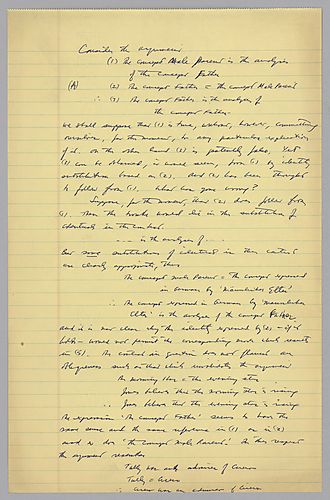 Consider the argument
(1) The concept Male Parent is the analysis
of the concept Father
(A) (2) The concept Father = the concept Male Parent
∴ (3) The concept Father is the analysis of
the concept Father.
We shall suppose that (1) is true, without, however, committing
ourselves, for the moment, to any particular explication
of it. On the other hand (3) is patently false. Yet
(3) can be obtained, it would seem, from (1) by identity
substitution based on (2). And (2) has been thought
to follow from (1). What has gone wrong?
Suppose, for the moment, that (2) does follow from
(1). Then the trouble would lie in the substitution of
identicals in the context
--- is the analysis of ...
But some substitutions of identicals in this context
are clearly appropriate, thus
The concept Male Parent = The concept expressed
in German by 'Maennliches Elter'
∴ The concept expressed in German by 'Maennliches
Elter' is the analysis of the concept Father
and it is not clear why the identity expressed by (2) – if it
holds – would not permit the corresponding move which results
in (3). The context in question does not
which invalidates the argument
The morning star = the evening star
Jones believes that the morning star is rising
∴ Jones believes that the evening star is rising
The expression 'the concept Father' seems to have the
same sense and the same reference in (1) as in (2)
and so does 'the concept Male Parent'. In this respect
the argument resembles
Tully was an admirer of Cicero
Tully = Cicero
∴ Cicero was an admirer of Cicero